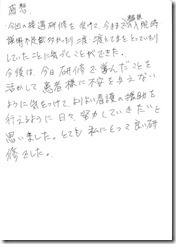 感想
今回の接遇研修を受けて、今までの入院時
説明不足だったり二度、三度
していたことに気づくことができた。
今後は、今日研修で学んだことを
活かして患者様に不安を与えない
ように気をつけて、よりよい看護の援助を
行えるように日々努力していきたいと
思いました。とても私にとって良い研
修でした。